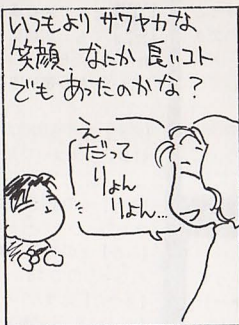 いつもより サワヤカな
笑顔、なにか 良いコト
でも あったのかな？
えー
だって
りょん
りょん…